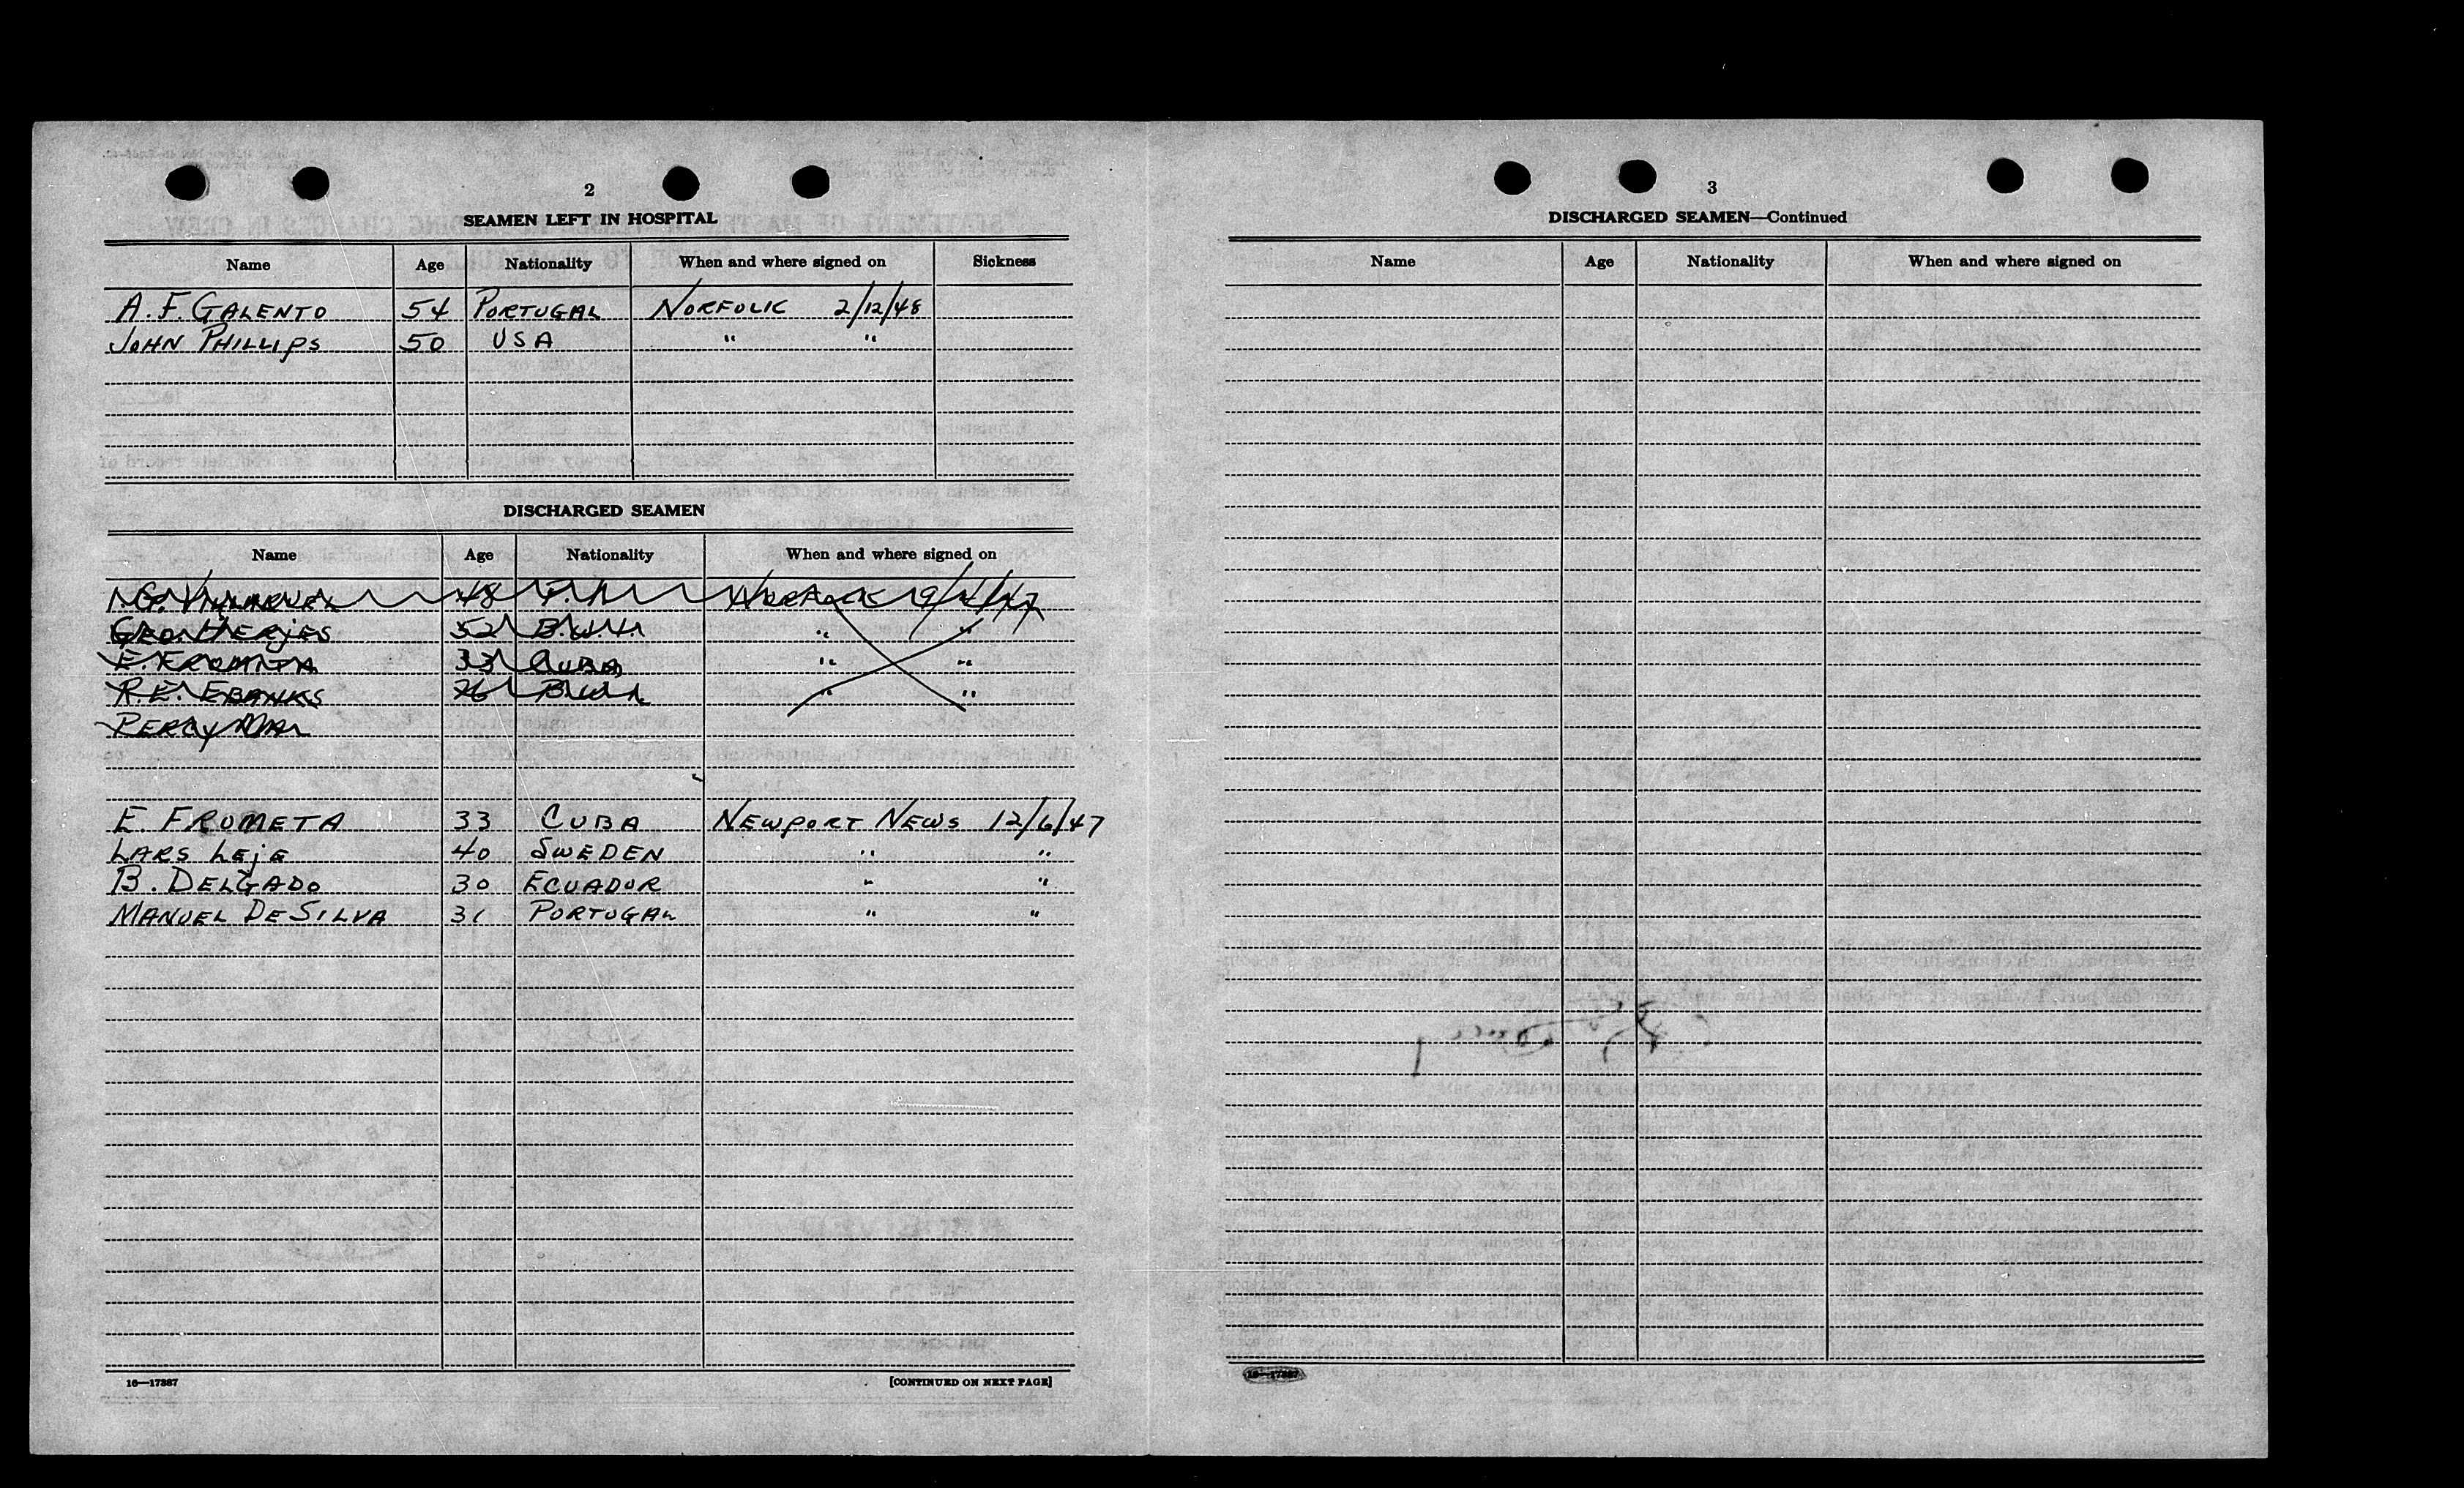 2
SEAMEN LEFT IN HOSPITAL
Name Age Nationality When and where signed on Sickness
A. F. GALENTO 54 PORTUGAL NORFOLK 2/12/48
JOHN PHILLIPS 50 USA " "
DISCHARGED SEAMEN
Name Age Nationality When and where signed on
48
52 B.W.I. " "
E. FROMETA 33 CUBA " "
R.E. EBANKS 26 B.W.I. " "
PERCY
E. FROMETA 33 CUBA NEWPORT NEWS 12/6/47
LARS LEjE 40 SWEDEN " "
B. DELGADO 30 ECUADOR " "
MANUEL DE SILVA 31 PORTUGAL " "
16—17387
[CONTINUED ON NEXT PAGE]
3
DISCHARGED SEAMEN—Continued
Name Age Nationality When and where signed on
16—17387